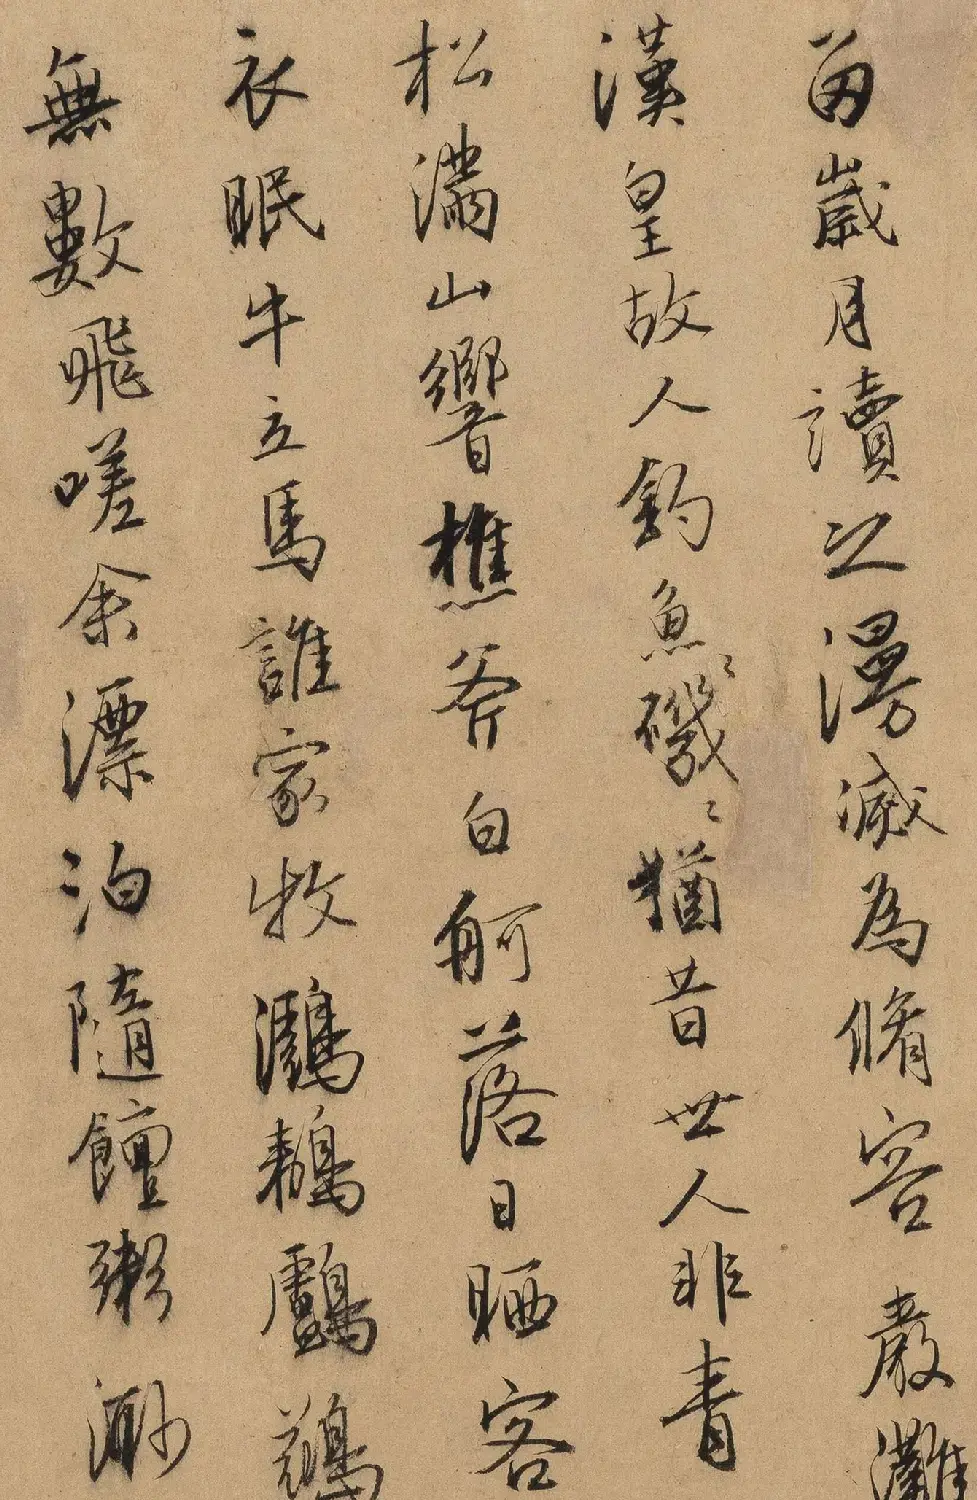 留歲月讀之漫滅為脩容嚴灘
漢皇故人釣魚磯〻〻猶昔世人非青
松滿山響樵斧白舸落日曬客
衣眠牛立馬誰家牧鸂鶒鸕鷀
無數飛嗟余漂泊隨饘粥渺